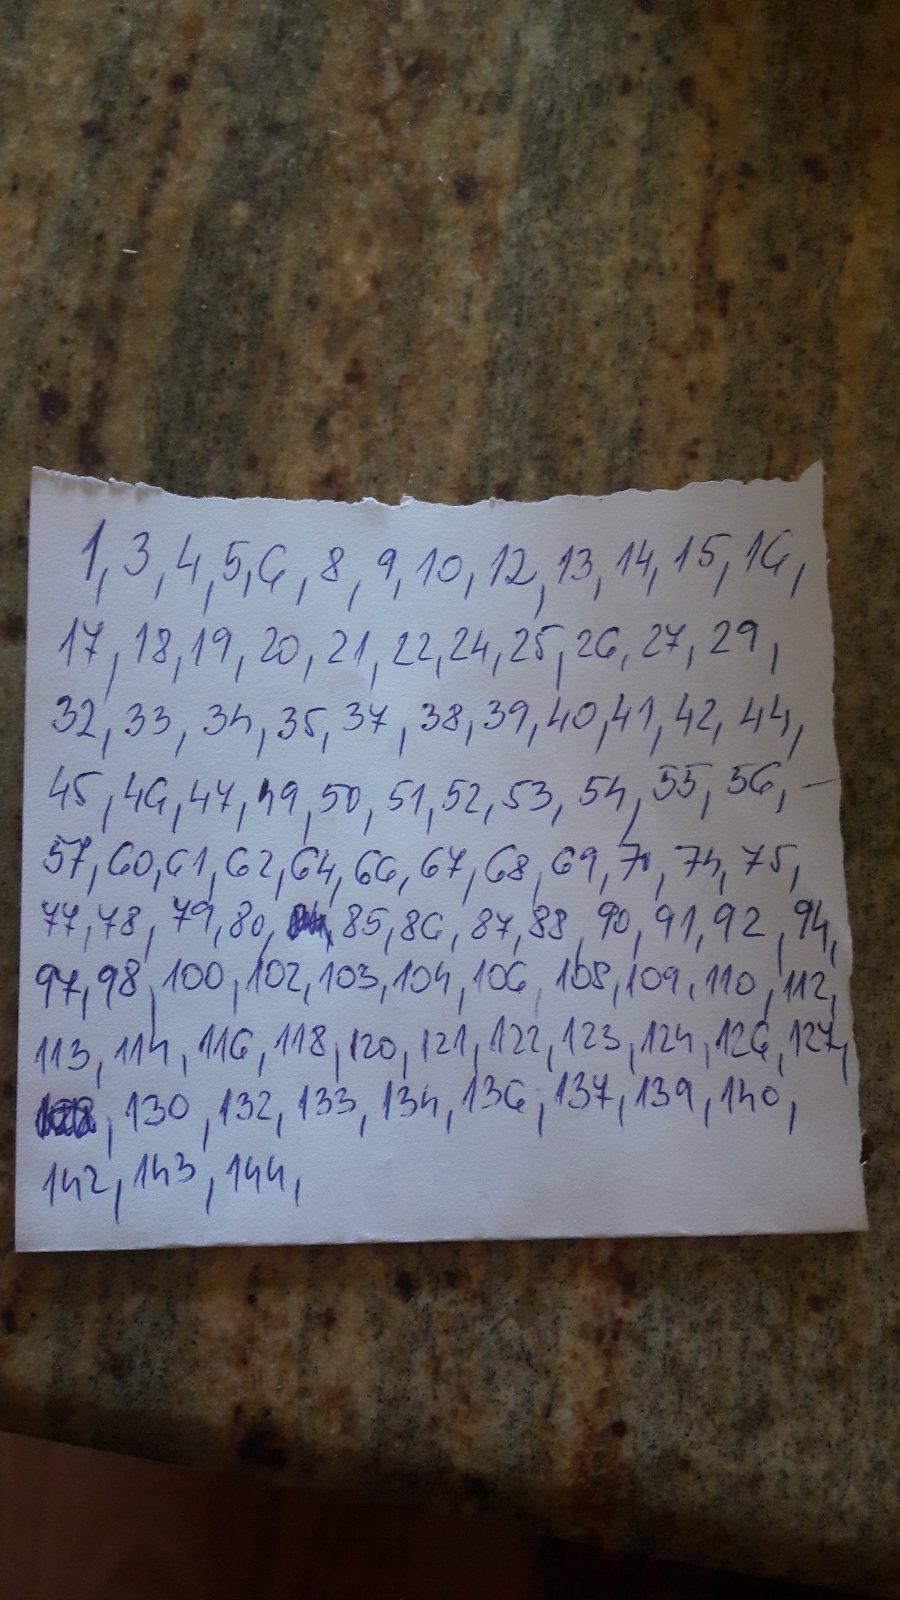 1, 3, 4, 5, 6, 8, 9, 10, 12, 13, 14, 15, 16,
17, 18, 19, 20, 21, 22, 24, 25, 26, 27, 29,
32, 33, 34, 35, 37, 38, 39, 40, 41, 42, 44,
45, 46, 47, 49, 50, 51, 52, 53, 54, 55, 56, -
57, 60, 61, 62, 64, 66, 67, 68, 69, 70, 74, 75,
77, 78, 79, 80, 85, 86, 87, 88, 90, 91, 92, 94,
97, 98, 100, 102, 103, 104, 106, 108, 109, 110, 112,
113, 114, 116, 118, 120, 121, 122, 123, 124, 126, 127,
130, 132, 133, 134, 136, 137, 139, 140,
142, 143, 144,